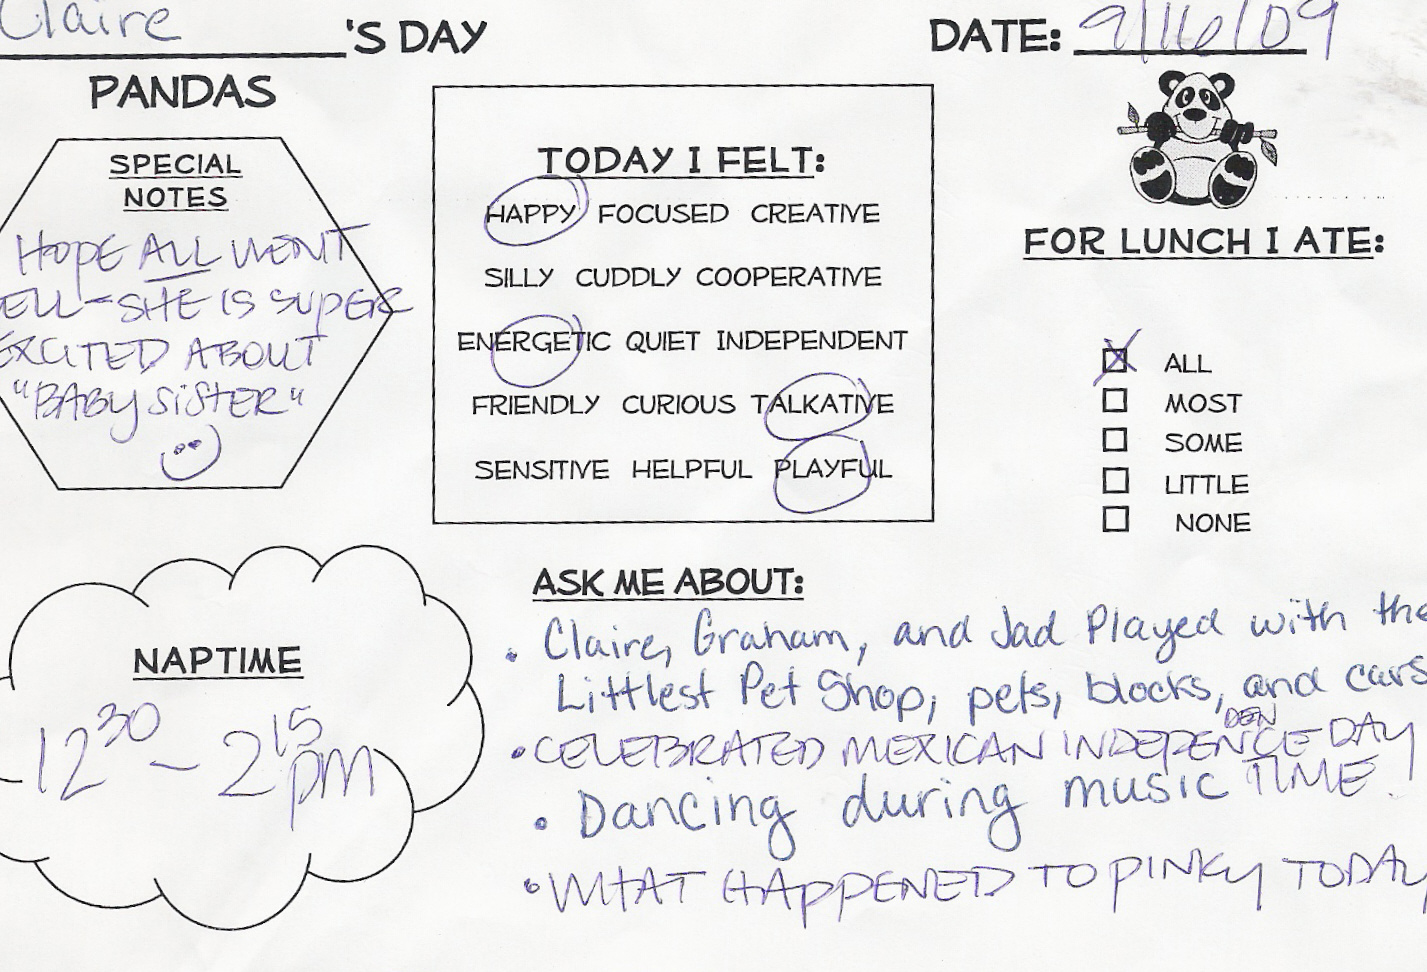 Claire 'S DAY
DATE: 9/16/09
PANDAS
SPECIAL
NOTES
HOPE ALL WENT
ELL - SHE IS SUPER
EXCITED ABOUT
"BABY SISTER"
TODAY I FELT:
HAPPY FOCUSED CREATIVE
SILLY CUDDLY COOPERATIVE
ENERGETIC QUIET INDEPENDENT
FRIENDLY CURIOUS TALKATIVE
SENSITIVE HELPFUL PLAYFUL
FOR LUNCH I ATE:
ALL
MOST
SOME
LITTLE
NONE
NAPTIME
12 30 - 2 15 pm
ASK ME ABOUT:
• Claire, Graham, and Jad Played with the
Littlest Pet Shop, pets, blocks, and cars
DEN
• CELEBRATED MEXICAN INDEPENCE DAY
• Dancing during music TIME.
• WHAT HAPPENED TO PINKY TODAY